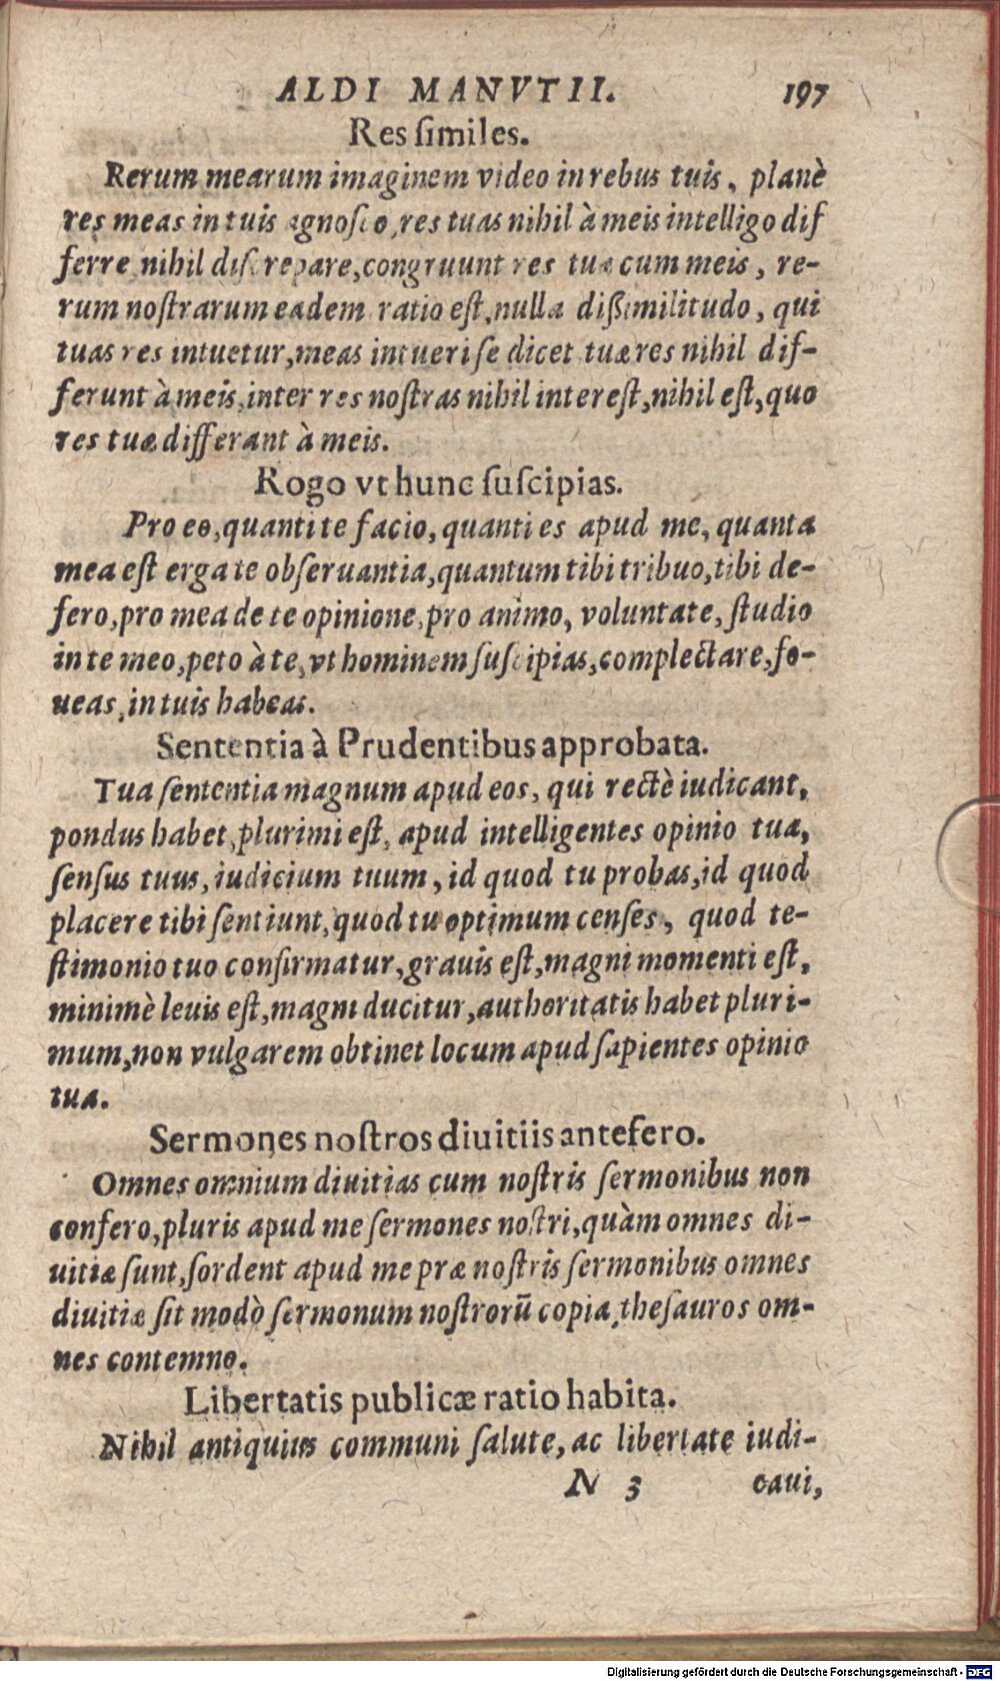 ALDI MANVTII. 197
Res ſimiles.
Rerum mearum imaginem video in rebus tuis, planè
res meas in tuis agnoſco, res tuas nihil à meis intelligo dif
ferre nihil diſcrepare, congruunt res tuæ cum meis, re-
rum noſtrarum eadem ratio eſt, nulla dißimilitudo, qui
tuas res intuetur, meas intueri ſe dicet tuæ res nihil dif-
ferunt à meis, inter res noſtras nihil intereſt, nihil eſt, quo
res tuæ differant à meis.
Rogo vt hunc ſuſcipias.
Pro eo, quanti te facio, quanti es apud me, quanta
mea eſt erga te obſeruantia, quantum tibi tribuo, tibi de-
fero, pro mea de te opinione, pro animo, voluntate, ſtudio
in te meo, peto à te, vt hominem ſuſcipias, complectare, fo-
ueas, in tuis habeas.
Sententia à Prudentibus approbata.
Tua ſententia magnum apud eos, qui rectè iudicant,
pondus habet, plurimi eſt, apud intelligentes opinio tua,
ſenſus tuus, iudicium tuum, id quod tu probas, id quod
placere tibi ſentiunt, quod tu optimum cenſes, quod te-
ſtimonio tuo confirmatur, grauis eſt, magni momenti eſt,
minimè leuis eſt, magni ducitur, authoritatis habet pluri-
mum, non vulgarem obtinet locum apud ſapientes opinio
tua.
Sermones noſtros diuitiis antefero.
Omnes omnium diuitias cum noſtris ſermonibus non
confero, pluris apud me ſermones noſtri, quàm omnes di-
uitiæ ſunt, ſordent apud me præ noſtris ſermonibus omnes
diuitiæ ſit modò ſermonum noſtrorū copia, theſauros om-
nes contemno.
Libertatis publicæ ratio habita.
Nihil antiquius communi ſalute, ac libertate iudi-
N 3 caui,
Digitalisierung gefördert durch die Deutsche Forschungsgemeinschaft - DFG